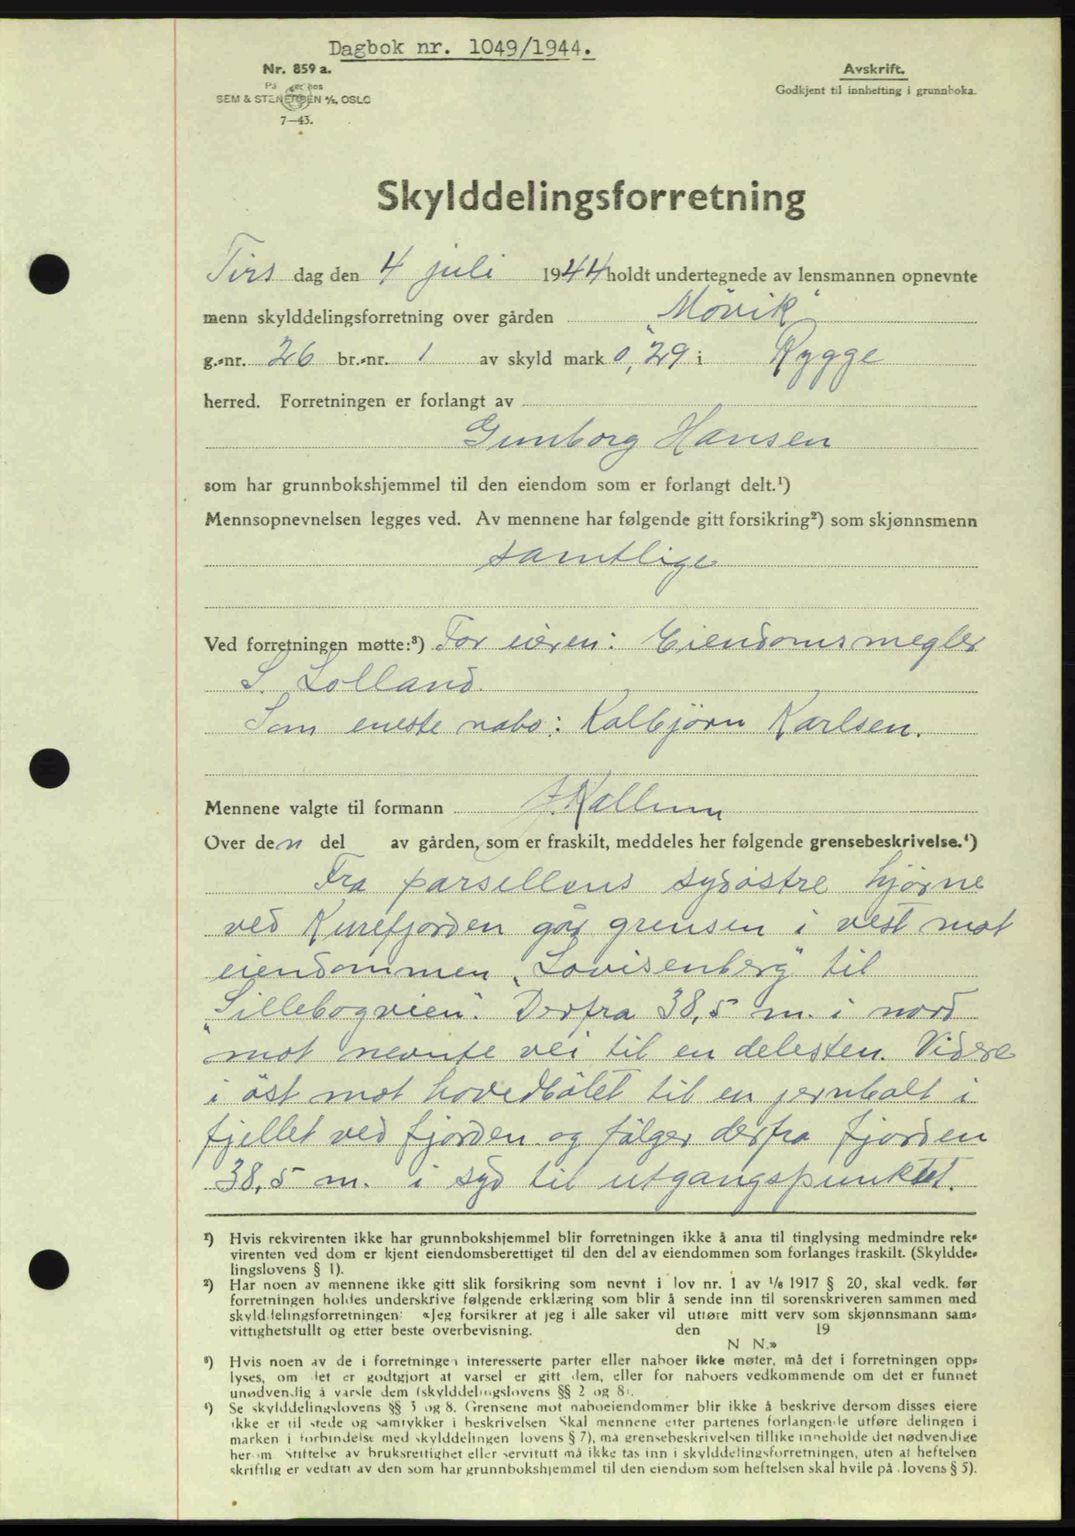 Dagbok nr. 1049/1944.
Nr. 859 a.
På lager hos
SEM & STENERSEN A/S, OSLO
7—43.
Avskrift.
Godkjent til innhefting i grunnboka.
Skylddelingsforretning
Tirs dag den 4 juli 1944 holdt undertegnede av lensmannen opnevnte
menn skylddelingsforretning over gården "Mövik"
g.-nr. 26 br.-nr. 1 av skyld mark 0,29 i Rygge
herred. Forretningen er forlangt av
Gunborg Hansen
som har grunnbokshjemmel til den eiendom som er forlangt delt.¹)
Mennsopnevnelsen legges ved. Av mennene har følgende gitt forsikring²) som skjønnsmenn
samtlige
Ved forretningen møtte:³) For eieren: Eiendomsmegler
S. Lolland.
Som eneste nabo: Kolbjörn Karlsen.
Mennene valgte til formann J. Kallum
Over den del av gården, som er fraskilt, meddeles her følgende grensebeskrivelse.⁴)
Fra parsellens sydöstre hjörne
ved Kurefjorden går grensen i vest mot
eiendommen "Lovisenberg" til
"Sillebogveien". Derfra 38,5 m. i nord
mot nevnte vei til en delesten. Videre
i öst mot hovedbölet til en jernbolt i
fjellet ved fjorden og fölger derfra fjorden
38,5 m. i syd til utgangspunktet.
¹) Hvis rekvirenten ikke har grunnbokshjemmel blir forretningen ikke å anta til tinglysing medmindre rek-
virenten ved dom er kjent eiendomsberettiget til den del av eiendommen som forlanges fraskilt. (Skyldde-
lingslovens § 1).
²) Har noen av mennene ikke gitt slik forsikring som nevnt i lov nr. 1 av 1/6 1917 § 20, skal vedk. før
forretningen holdes underskrive følgende erklæring som blir å sende inn til sorenskriveren sammen med
skylddelingsforretningen: «Jeg forsikrer at jeg i alle saker vil utføre mitt verv som skjønnsmann sam-
vittighetsfullt og etter beste overbevisning. den 19
N N.»
³) Hvis noen av de i forretningen interesserte parter eller naboer ikke møter, må det i forretningen opp-
lyses, om det er godtgjort at varsel er gitt dem, eller for naboers vedkommende om det er funnet
unødvendig å varsle dem (skylddelingslovens §§ 2 og 8).
⁴) Se skylddelingslovens §§ 3 og 8. Grensene mot naboeiendommer blir ikke å beskrive dersom disses eiere
ikke er til stede og samtykker i beskrivelsen. Skal mennene etter partenes forlangende utføre delingen i
marken i forbindelse med skylddelingen (lovens § 7), må grensebeskrivelsen tillike inneholde det nødvendige
herom. Stiftelse av bruksrettighet eller servitutt må ikke tas inn i skylddelingsforretningen, uten at heftelsen
skriftlig er vedtatt av den som har grunnbokshjemmel til den eiendom som heftelsen skal hvile på (lovens § 5).